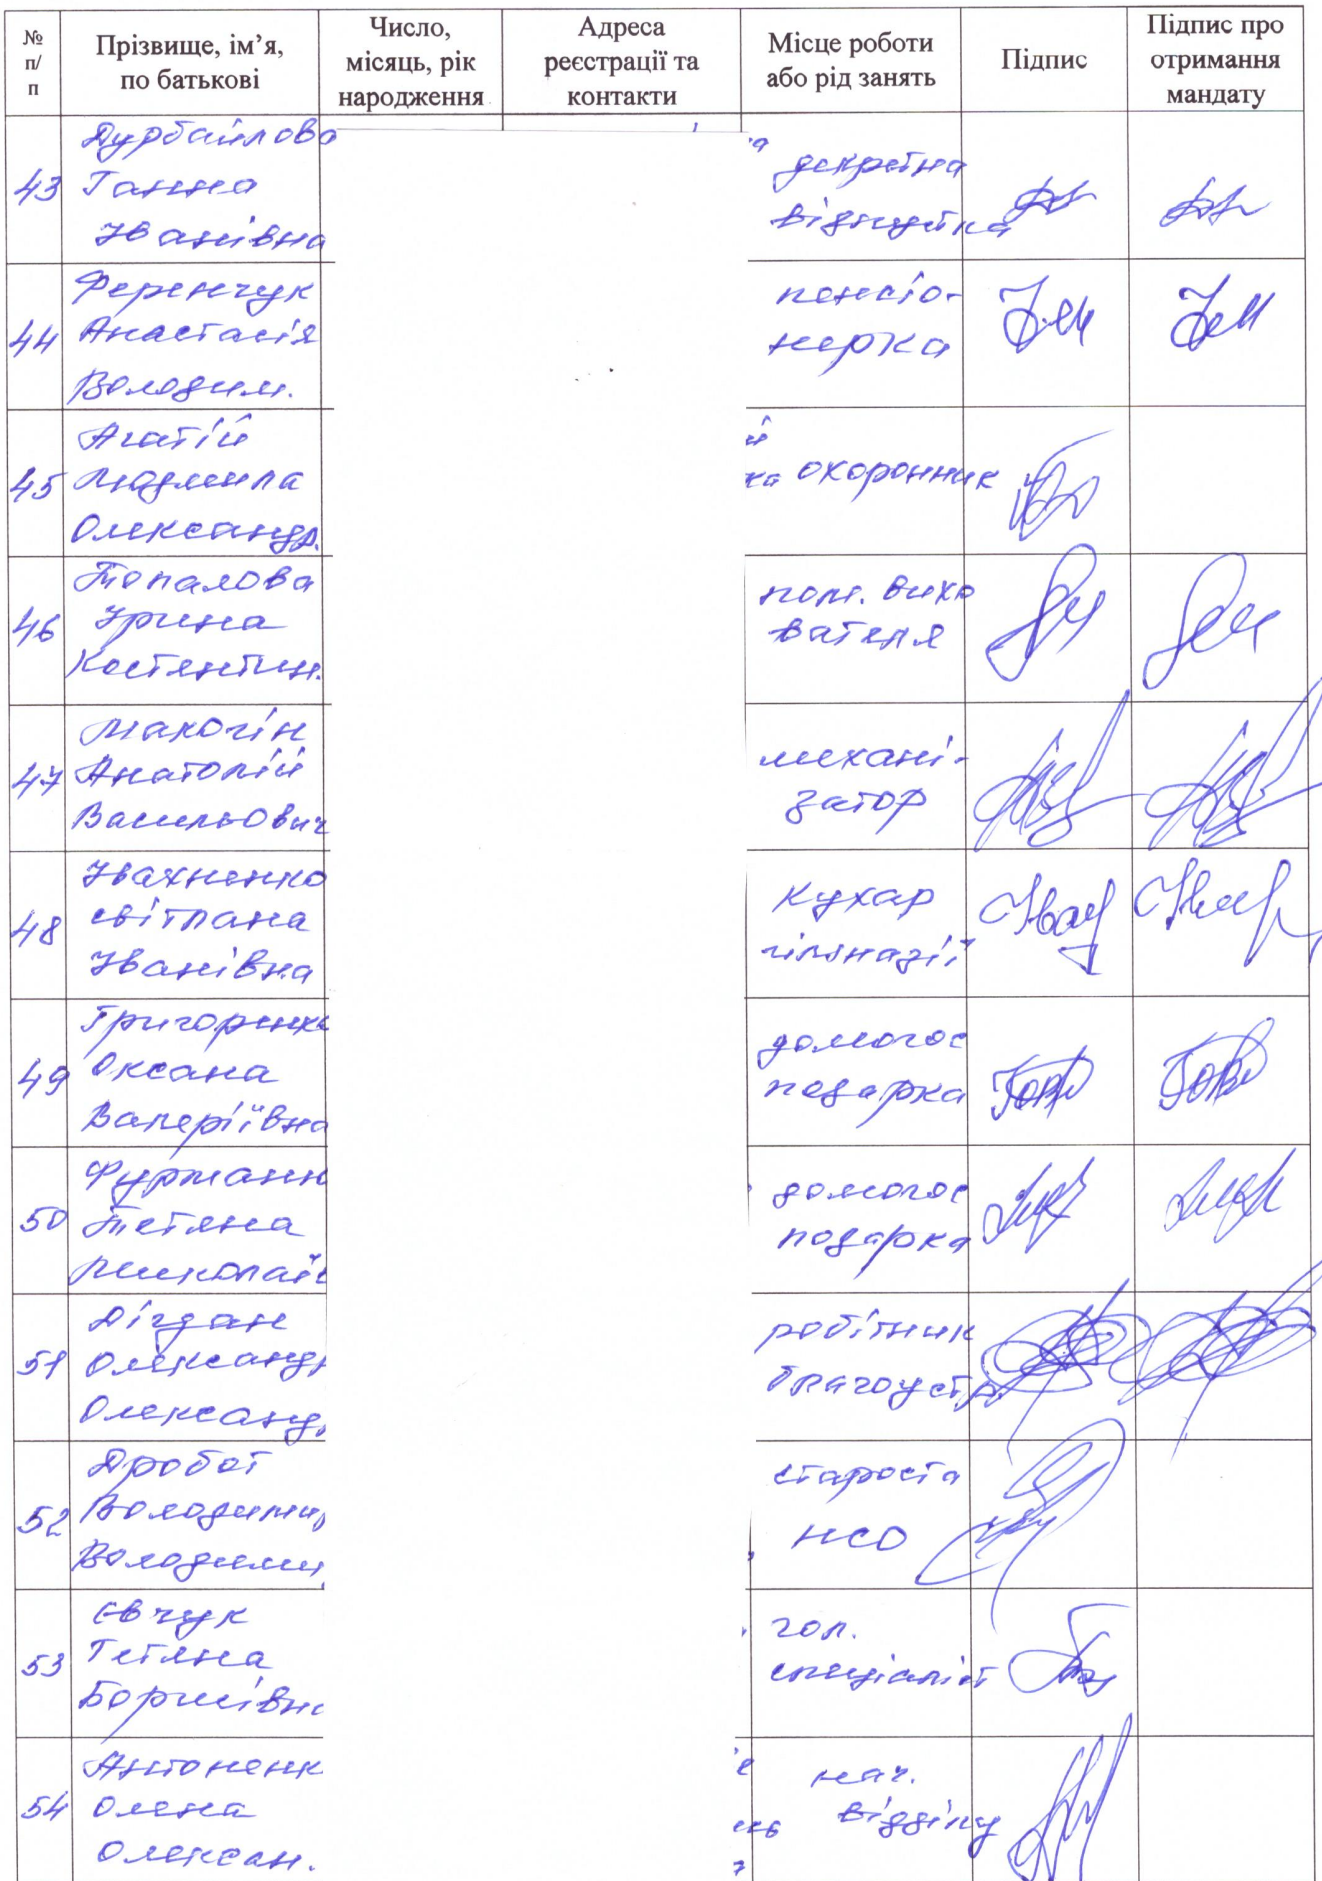 № п/п
Прізвище, ім’я, по батькові
Число, місяць, рік народження
Адреса реєстрації та контакти
Місце роботи або рід занять
Підпис
Підпис про отримання мандату
43
Дурбайлова
Ганна
Іванівна
декретна
відпустка
44
Ференчук
Анастасія
Володим.
пенсіо-
нерка
45
Агатій
Людмила
Олександр.
охоронник
46
Топалова
Ірина
Костянтин.
пом. вихо
вателя
47
Макогін
Анатолій
Васильович
механі-
затор
48
Івахненко
Світлана
Іванівна
кухар
гімназії
49
Григоренко
Оксана
Валеріївна
домогос
подарка
50
Фурманн
Тетяна
Миколаїв
домогос
подарка
51
Дігдан
Олександр
Олександ
робітник
благоустр.
52
Дробот
Володими
Володими
староста
НСО
53
Євчук
Тетяна
Борисівна
гол.
спеціаліст
54
Антоненк
Олена
Олексан.
нач.
відділу